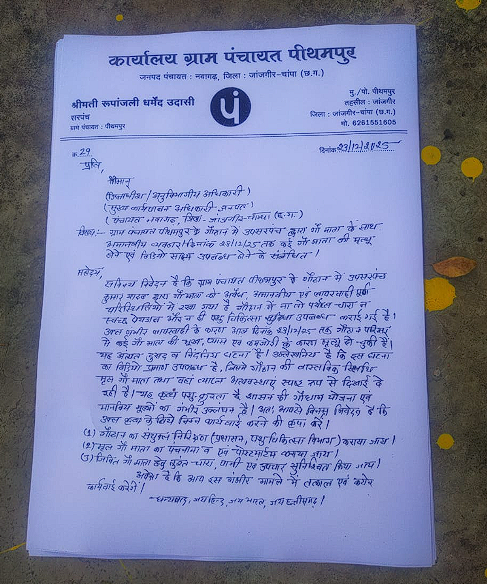 कार्यालय ग्राम पंचायत पीथमपुर
जनपद पंचायत : नवागढ़, जिला : जांजगीर-चांपा (छ.ग.)
श्रीमती रूपांजली धर्मेंद उदासी
सरपंच
ग्राम पंचायत : पीथमपुर
पं
मु./पो. पीथमपुर
तहसील : जांजगीर
जिला : जांजगीर-चांपा (छ.ग.)
मो. 6261551605
क्र. 29
दिनांक 23/12/2025
प्रति,
श्रीमान्
(जिलाधीश/अनुविभागीय अधिकारी)
(मुख्य कार्यपालन अधिकारी जनपद)
(पंचायत नवागढ़, जिला - जांजगीर-चाम्पा (छ.ग.)
विषय:- ग्राम पंचायत पीथमपुर के गौठान में उपसरपंच द्वारा गौ माता के साथ
अमानवीय व्यवहार/दिनांक 23/12/25 तक कई गौ माता की मृत्यु
होने एवं विडियो साक्ष्य उपलब्ध होने के संबंधित।
महोदय,
सविनय निवेदन है कि ग्राम पंचायत पीथमपुर के गौठान में उपसरपंच
कुमार यादव द्वारा गौ माता को अवैध, अमानवीय एवं लापरवाही पूर्ण
परिस्थितियों में रखा गया है। गौठान में ना तो पर्याप्त चारा न
स्वच्छ पेयजल और न ही पशु चिकित्सा सुविधा उपलब्ध कराई गई है।
उक्त गंभीर लापरवाही के कारण आज दिनांक 23/12/25 तक गौठान परिसर
में कई गौ माता की भूख, प्यास एवं कमजोरी के कारण मृत्यु हो चुकी है।
यह अत्यंत दुखद व निंदनीय घटना है। उल्लेखनीय है कि इस घटना
का विडियो प्रमाण उपलब्ध है, जिसमें गौठान की वास्तविक स्थिति
मृत गौ माता तथा वहां व्याप्त अव्यवस्थाएं स्पष्ट रूप से दिखाई दे
रही है। यह कृत्य पशु क्रूरता है शासन की गौधाम योजना एवं
मानवीय मूल्यों का गंभीर उल्लंघन है। अतः आपसे विनम्र निवेदन है कि
उक्त कृत्य के लिये निम्न कार्यवाही करने की कृपा करें।
(1) गौठान का संयुक्त निरीक्षण (प्रशासन, पशु चिकित्सा विभाग) कराया जाय।
(2) मृत गौ माता का पंचनामा व एवं पोस्टमार्टम कराया जाय।
(3) जिवित गौ माता हेतु तुरंत चारा, पानी एवं उपचार सुनिश्चित किया जाय।
अपेक्षा है कि आप इस गंभीर मामले में तत्काल एवं कठोर
कार्यवाई करेंगे।
धन्यवाद, जय हिन्द, जय भारत, जय छत्तीसगढ़।